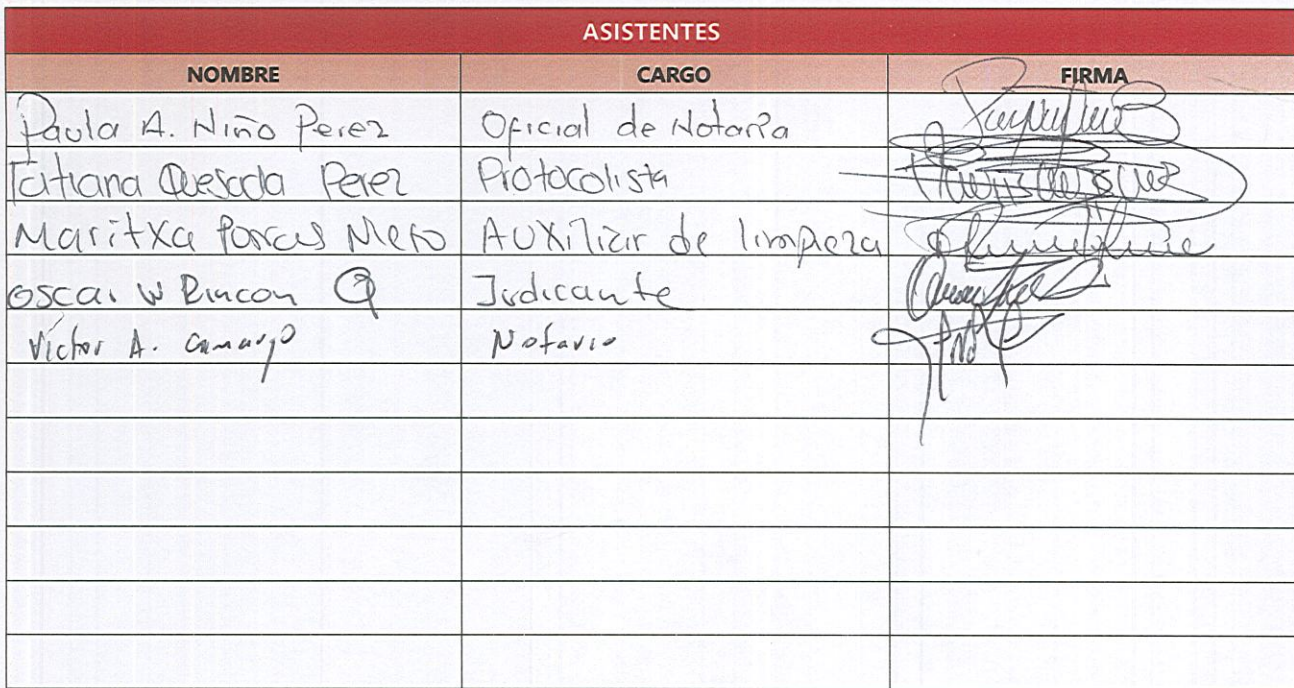 ASISTENTES
NOMBRE CARGO FIRMA
Paula A. Niño Perez Oficial de Notaría
Tatiana Quesada Perez Protocolista
Maritxa Porras Nieto Auxiliar de limpieza
Oscar W Rincon Q Judicante
Victor A. Camargo Notario